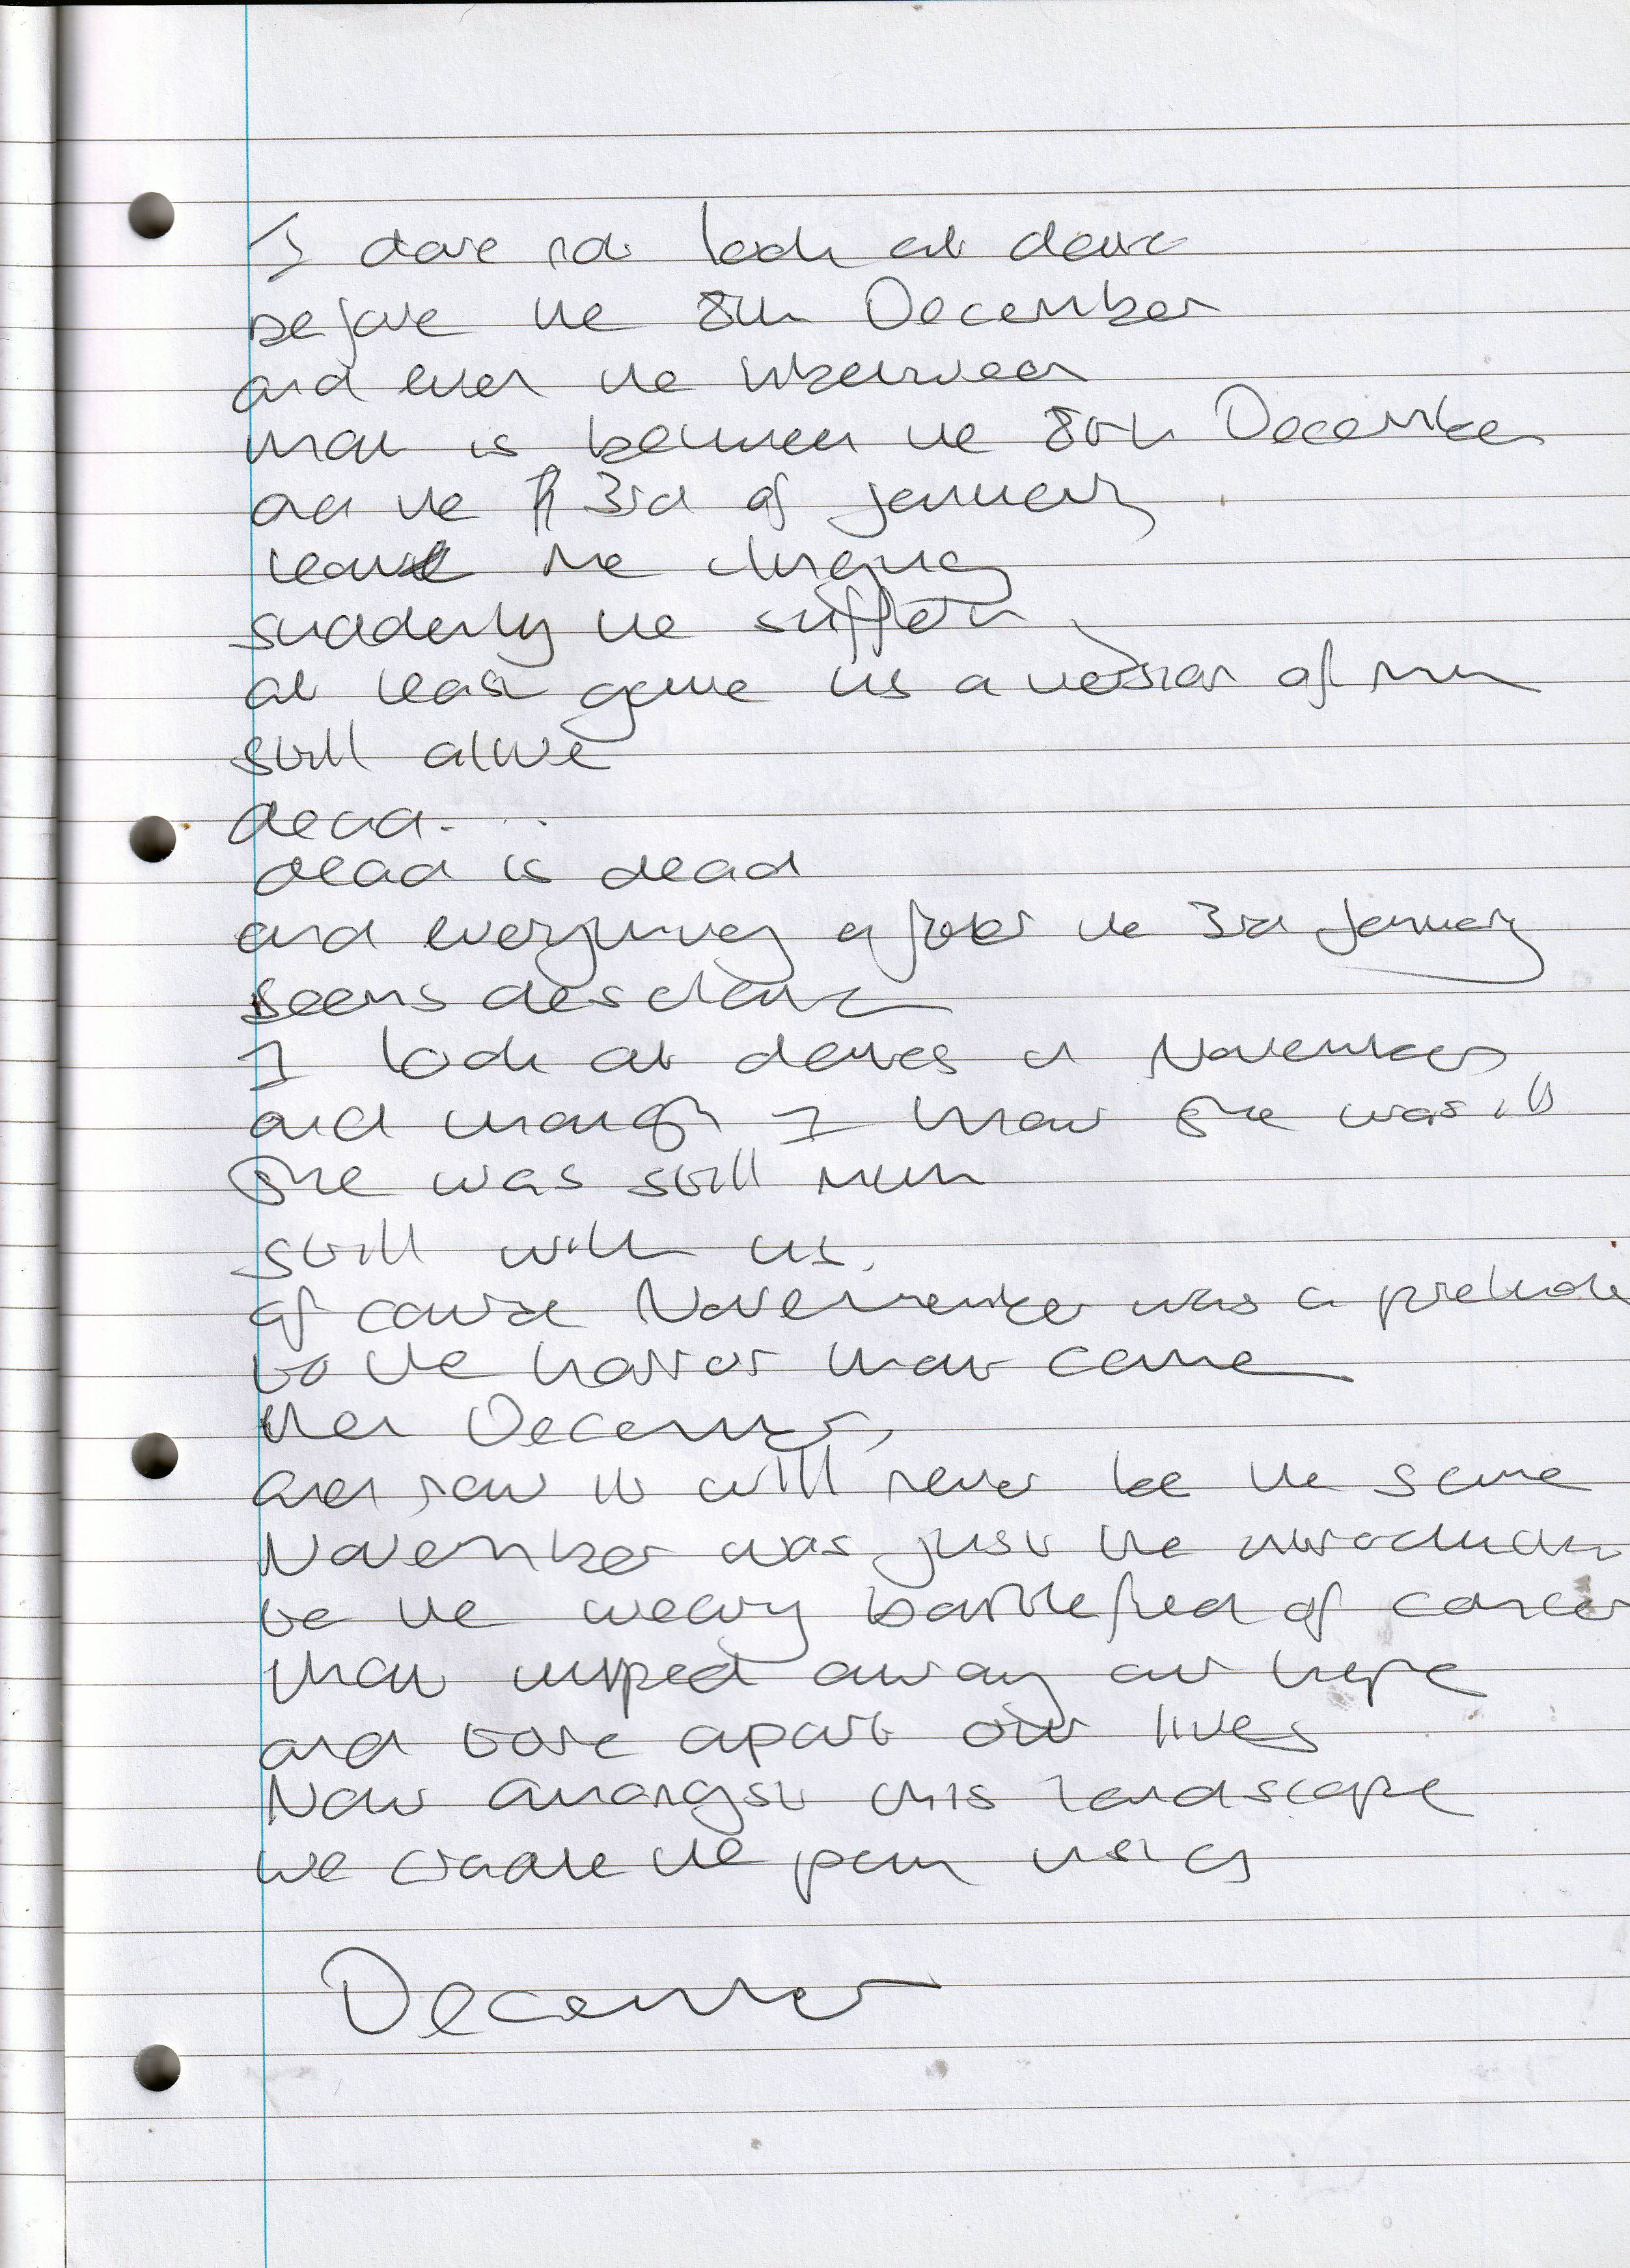 I dare not look at date
before the 8th December
and even the inbetween
that is between the 8th December
and the 3rd of January
leave me
suddenly the
at least gave us a version of mum
still alive
dead...
dead is dead
and everything after the 3rd January
seems desolate
I look at dates in November
and though I know she was ill
she was still mum
still with us.
of course November was a prelude
to the horror that came
then December,
and now it will never be the same
November was just the introduction
to the weary battlefield of cancer
that wiped away our hope
and tore apart our lives
Now amongst this landscape
we cradle the pain using
December